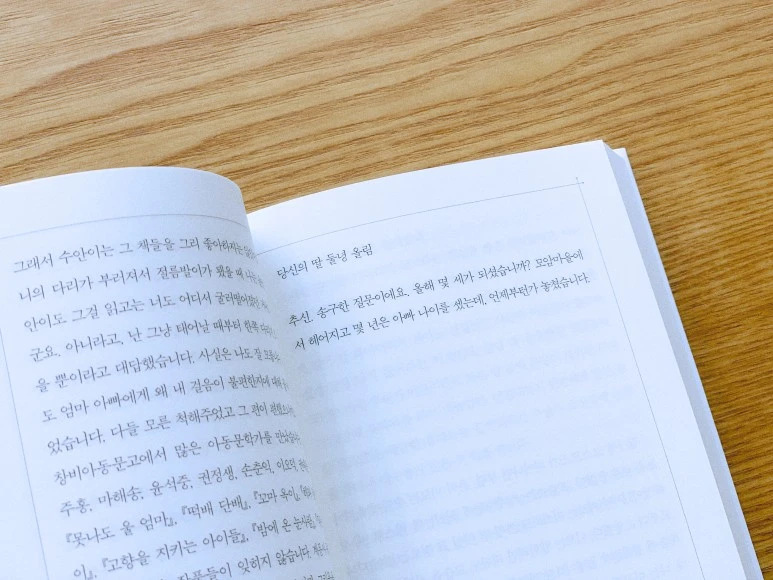 그래서 수안이는 그 책들을 그리 좋아하지는
니의 다리가 부러져서 절름발이가 됐을 때 나는
안이도 그걸 읽고는 너도 어디서 굴러떨어졌
군요. 아니라고, 난 그냥 태어날 때부터 한쪽 다리
을 뿐이라고 대답했습니다. 사실은 나도 잘 모릅니
도 엄마 아빠에게 왜 내 걸음이 불편한지에 대해
었습니다. 다들 모른 척해주었고 그 편이 편했
창비아동문고에서 많은 아동문학가를 만났습니
주홍, 마해송, 윤석중, 권정생, 손춘익, 이오덕,
『못나도 울 엄마』, 『떡배 단배』, 『꼬마 옥이』,
이』, 『고향을 지키는 아이들』, 『밤에 온 눈사람』,
작품들이 잊히지 않습니다.
당신의 딸 둘녕 올림
추신. 송구한 질문이에요. 올해 몇 세가 되셨습니까? 모암마을에
서 헤어지고 몇 년은 아빠 나이를 셌는데, 언제부턴가 놓쳤습니다.